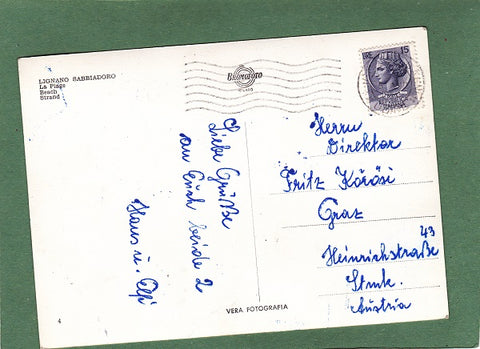 LIGNANO SABBIADORO
La Plage
Beach
Strand
15
Liebe Grüße
an Euch beide 2
Hans u. Elfi
Herrn
Direktor
Fritz Körösi
Graz
43
Heinrichstraße
Stmk.
Austria
VERA FOTOGRAFIA
4